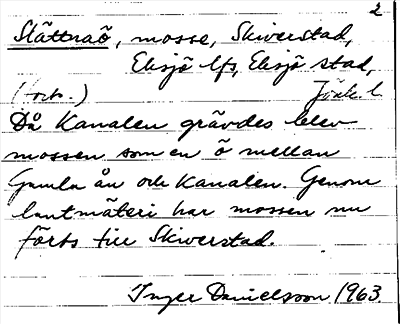 2
Slättnaö, mosse, Skiverstad,
Eksjö lfs, Eksjö stad,
(forts.) Jönk l
Då Kanalen grävdes blev
mossen som en ö mellan
Gamla ån och Kanalen. Genom
lantmäteri har mossen nu
förts till Skiverstad.
Inger Danielsson 1963.